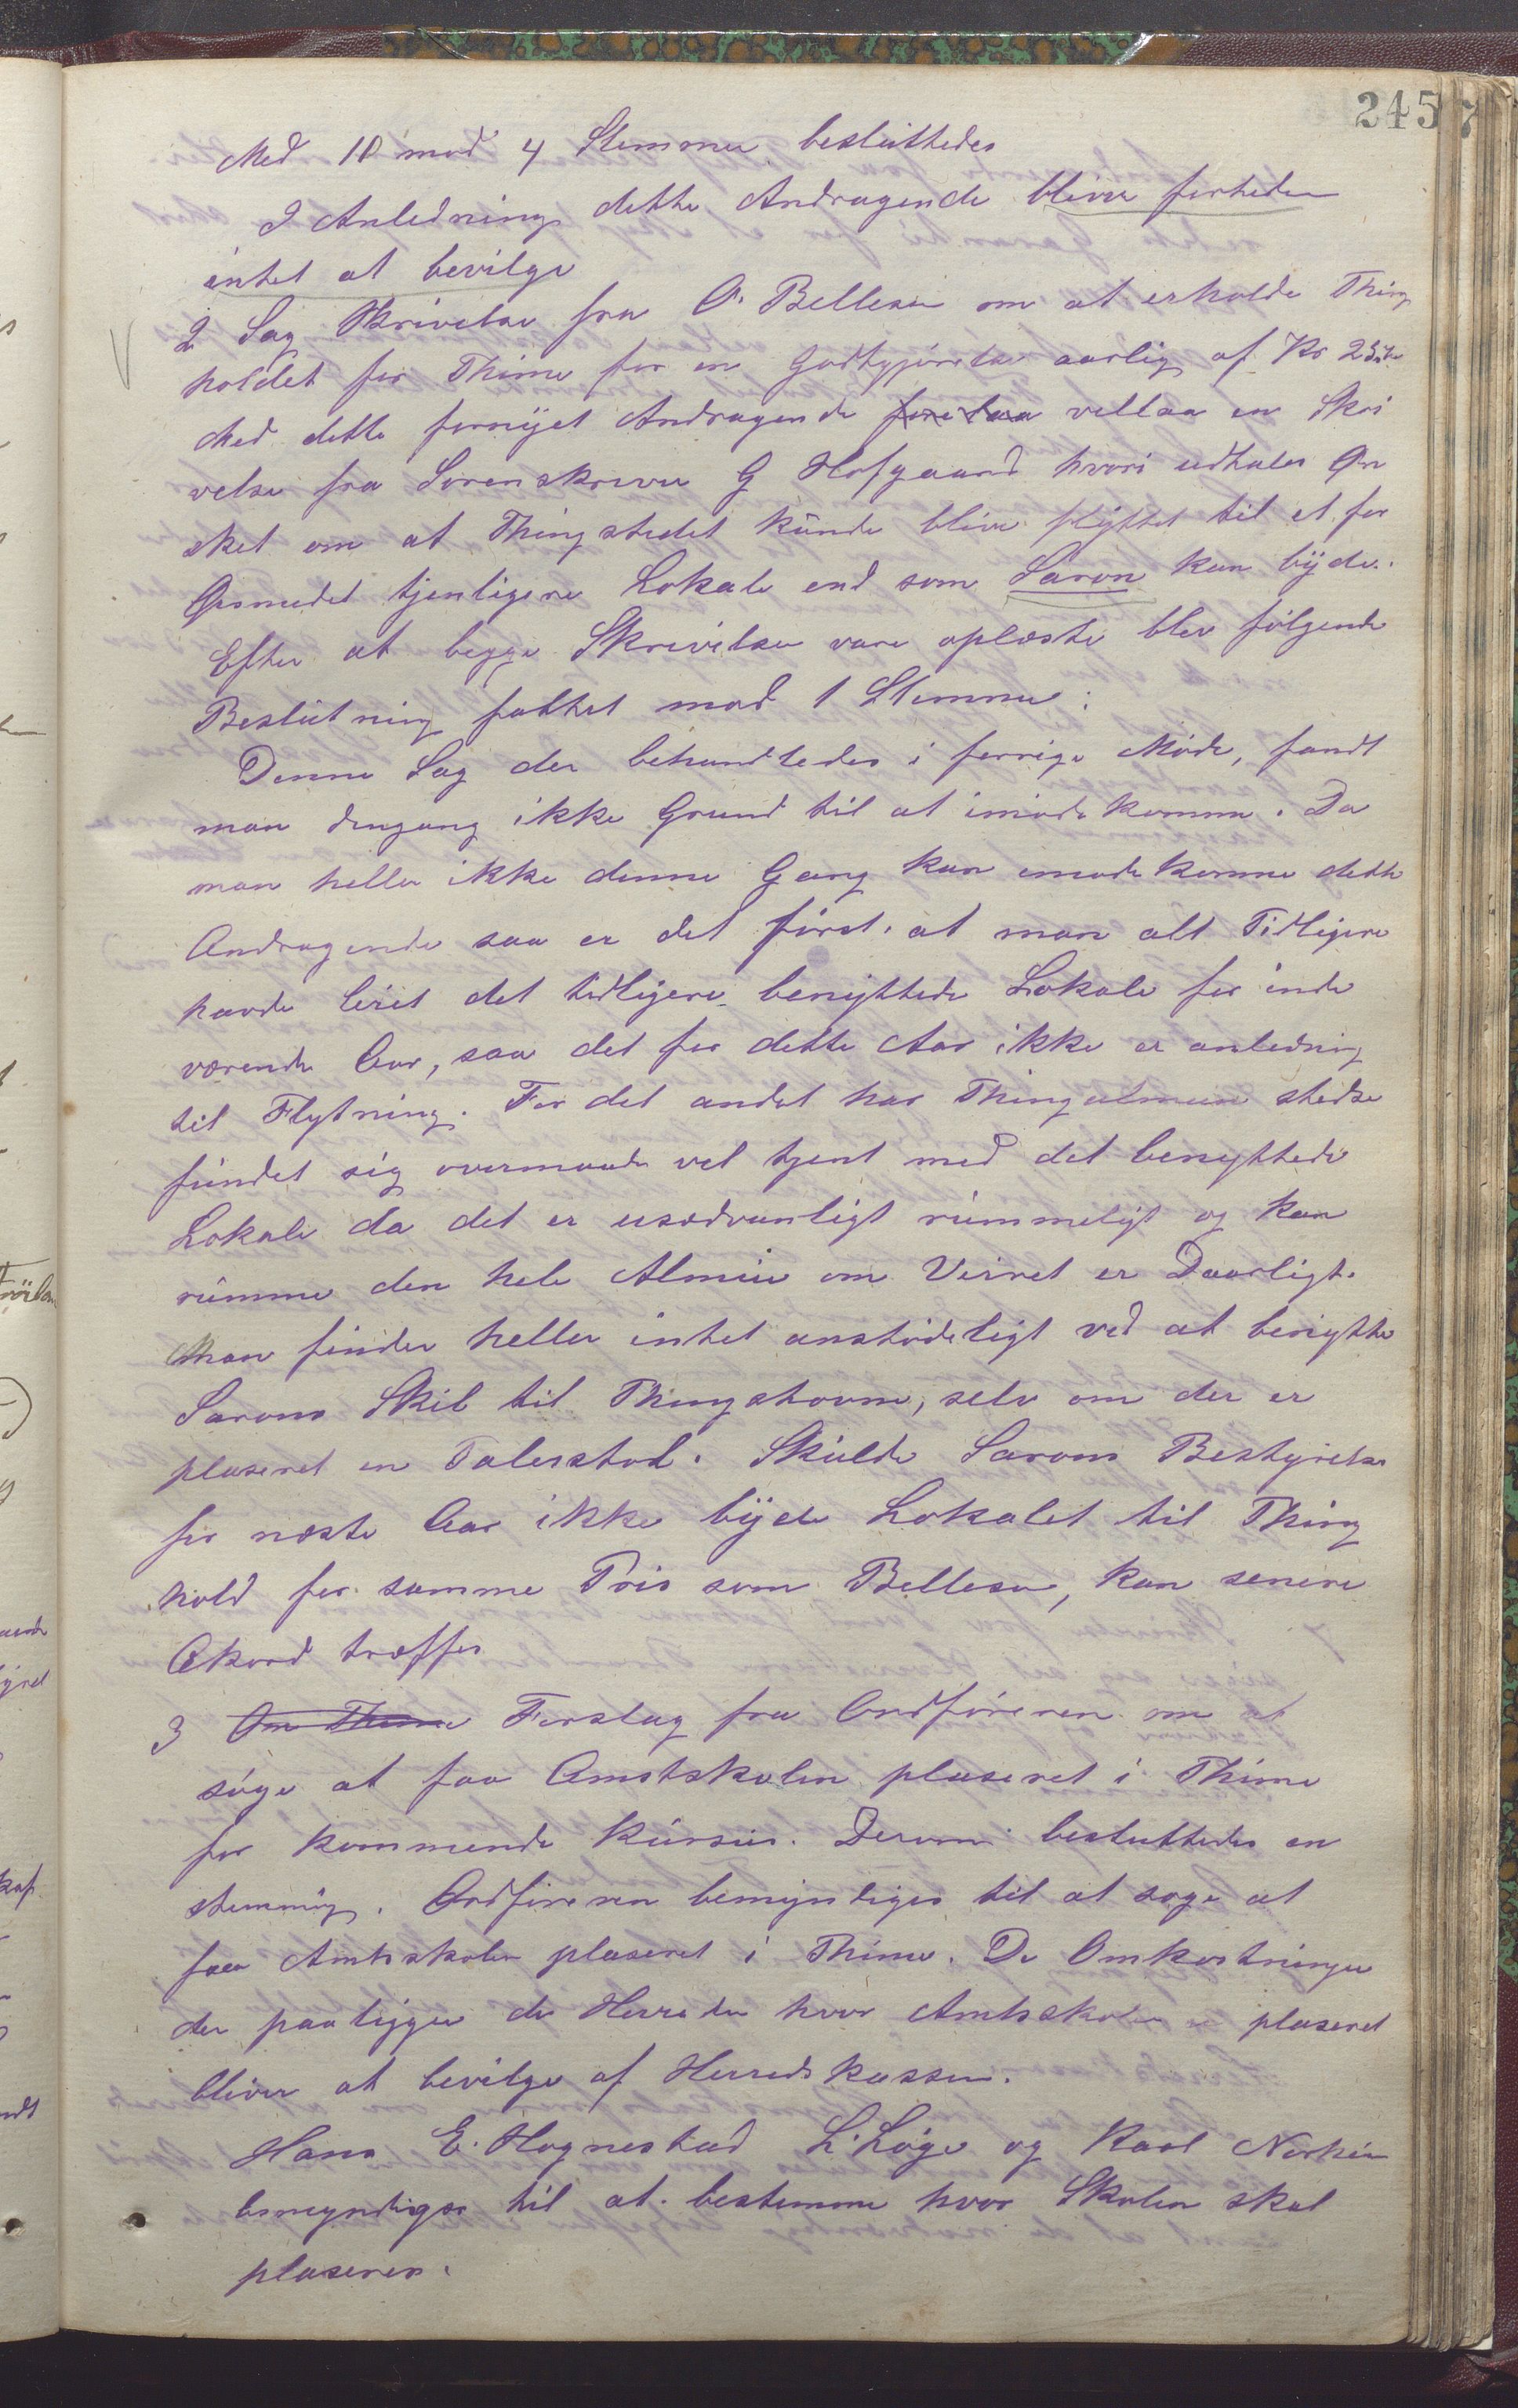 245
Med 10 mod 4 Stemmer besluttedes
I Anledning dette Andragende bliver forheden
intet at bevilge
2 Sag Skrivelse fra O. Bellesen om at erholde Thing
holdet for Thime for en Godtgjörelse aarlig af Kr 25
Med dette fornyet Andragende forelaa vellaa en Skri
velse fra Sorenskriver G Hofgaard hvori udtales Øn
sket om at Thingstedet kunde blive flyttet til et for
Øiemedet tjenligere Lokale end som Saron kan byde.
Efter at begge Skrivelser vare oplæste blev følgende
Beslutning fattet mod 1 Stemme:
Denne Sag der behandledes i forrige Møde, fandt
man dengang ikke Grund til at imødekomme. Da
man heller ikke denne Gang kan imødekomme dette
Andragende saa er det först. at man alt Tidligere
havde leiet det tidligere benyttede Lokale for inde
værende Aar, saa det for dette Aar ikke er anledning
til Flytning. For det andet har Thingalmuen stedse
fundet sig overmaade vel tjent med det benyttede
Lokale da det er usædvanligt rümmeligt og kan
rümme den hele Almue om Veiret er Daarligt.
Man finder heller intet anstødeligt ved at benytte
Sarons Skib til Thingstovne, selv om der er
plaseret en Talerstol. Skulde Sarons Bestyrelse
for næste Aar ikke byde Lokalet til Thing
hold for samme Pris som Bellesen, kan senere
Akord træffes
3 Om Thime Forslag fra Ordföreren om at
søge at faa Amstskolen plaseret i Thime
for kommende Kürsus. Derom besluttedes en
stemmig. Ordföreren bemyndiges til at søge at
faa Amtsskolen plaseret i Thime. De Omkostninger
der paaligger de Herreder hvor Amtsskolen er plaseret
bliver at bevilge af Herredskassen.
Hans E. Hognestad L. Löge og Karl Norheim
bemyndiges til at bestemme hvor Skolen skal
plaseres.